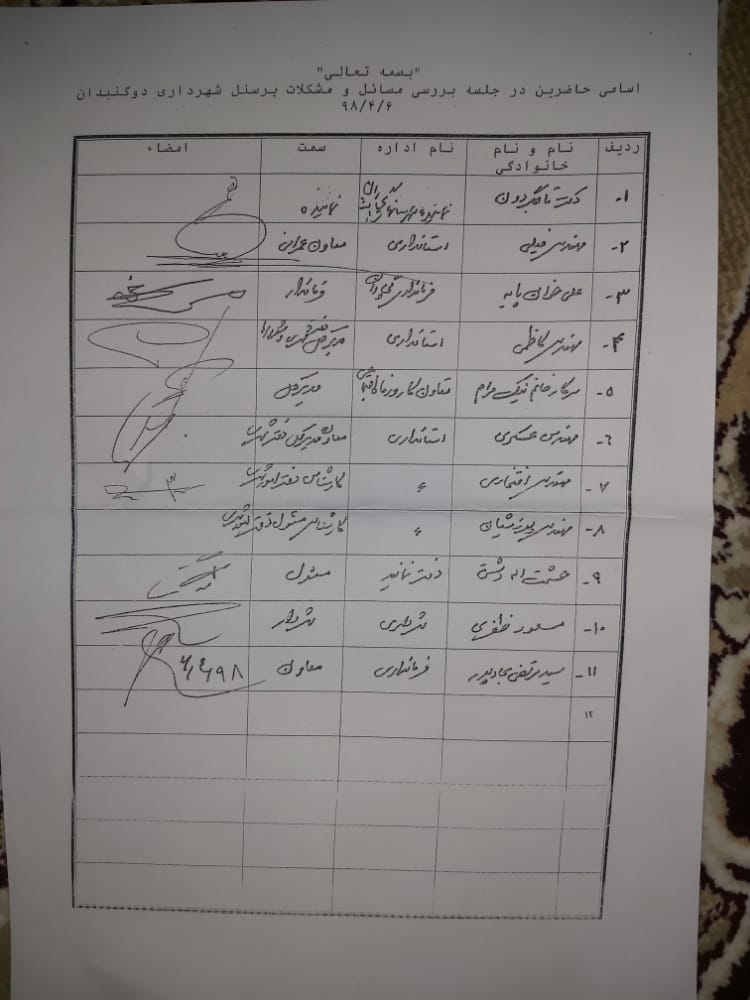 "بسمه تعالی"
اسامی حاضرین در جلسه بررسی مسائل و مشکلات پرسنل شهرداری دوگنبدان
۹۸/۴/۶
ردیف نام و نام خانوادگی نام اداره سمت امضاء
۱- دکتر تاجگردون نماینده شهرستانهای گچساران نماینده
۲- مهندس استانداری معاون عمران
۳- علی خوان پایه فرمانداری گچساران فرماندار
۴- مهندس کاظمی استانداری مدیرکل دفتر شهری
۵- سرکار خانم نیک مرام معاون کار و رفاه اجتماعی مدیرکل
۶- مهندس عسکری استانداری معاون مدیرکل دفتر شهری
۷- مهندس افتخاری ״ کارشناس دفتر امور شهری
۸- مهندس ״ کارشناس مسئول دفتر شهری
۹- حشمت اله دفتر نماینده مسئول
۱۰- مسعود ظفری شهرداری شهردار
۱۱- سید مرتضی فرمانداری معاون ۹۸/۴/۶
۱۲